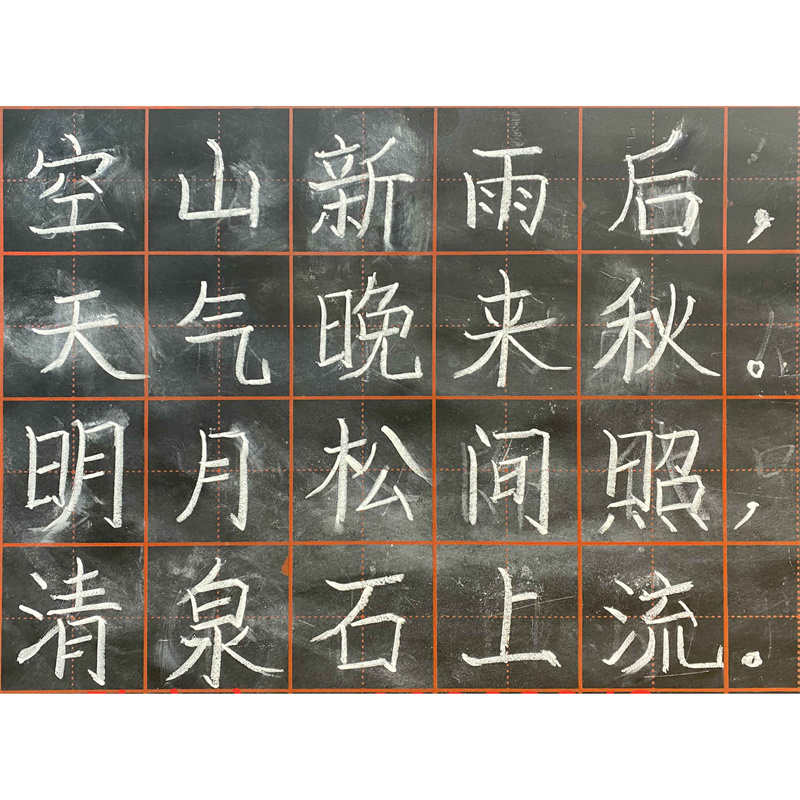 空山新雨后，
天气晚来秋。
明月松间照，
清泉石上流。